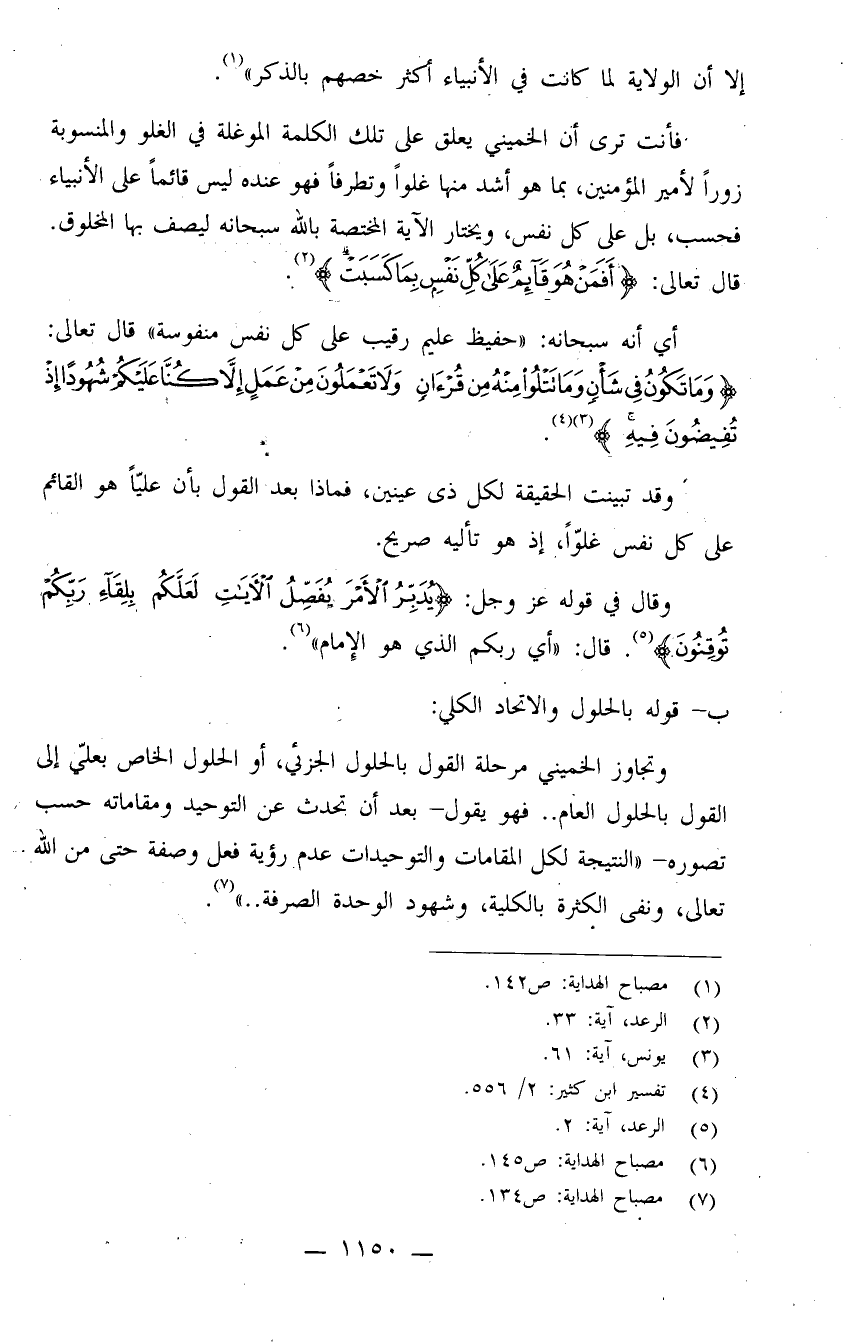 إلا أن الولاية لما كانت في الأنبياء أكثر خصهم بالذكر»(١).
فأنت ترى أن الخميني يعلق على تلك الكلمة الموغلة في الغلو والمنسوبة
زوراً لأمير المؤمنين، بما هو أشد منها غلواً وتطرفاً فهو عنده ليس قائماً على الأنبياء
فحسب، بل على كل نفس، ويختار الآية المختصة بالله سبحانه ليصف بها المخلوق.
قال تعالى: ﴿أَفَمَنْ هُوَ قَآئِمٌ عَلَىٰ كُلِّ نَفْسٍۭ بِمَا كَسَبَتْ ۗ﴾(٢).
أي أنه سبحانه: «حفيظ عليم رقيب على كل نفس منفوسة» قال تعالى:
﴿وَمَا تَكُونُ فِى شَأْنٍ وَمَا تَتْلُوا۟ مِنْهُ مِن قُرْءَانٍ وَلَا تَعْمَلُونَ مِنْ عَمَلٍ إِلَّا كُنَّا عَلَيْكُمْ شُهُودًا إِذْ
تُفِيضُونَ فِيهِ ۚ﴾(٣)(٤).
وقد تبينت الحقيقة لكل ذى عينين، فماذا بعد القول بأن عليّاً هو القائم
على كل نفس غلوّاً، إذ هو تأليه صريح.
وقال في قوله عز وجل: ﴿يُدَبِّرُ ٱلْأَمْرَ يُفَصِّلُ ٱلْآيَـٰتِ لَعَلَّكُم بِلِقَآءِ رَبِّكُمْ
تُوقِنُونَ﴾(٥). قال: «أي ربكم الذي هو الإمام»(٦).
ب– قوله بالحلول والاتحاد الكلي:
وتجاوز الخميني مرحلة القول بالحلول الجزئي، أو الحلول الخاص بعليّ إلى
القول بالحلول العام.. فهو يقول– بعد أن تحدث عن التوحيد ومقاماته حسب
تصوره– «النتيجة لكل المقامات والتوحيدات عدم رؤية فعل وصفة حتى من الله
تعالى، ونفى الكثرة بالكلية، وشهود الوحدة الصرفة..»(٧).
(١) مصباح الهداية: ص١٤٢.
(٢) الرعد، آية: ٣٣.
(٣) يونس، آية: ٦١.
(٤) تفسير ابن كثير: ٢/ ٥٥٦.
(٥) الرعد، آية: ٢.
(٦) مصباح الهداية: ص١٤٥.
(٧) مصباح الهداية: ص١٣٤.
– ١١٥٠ –